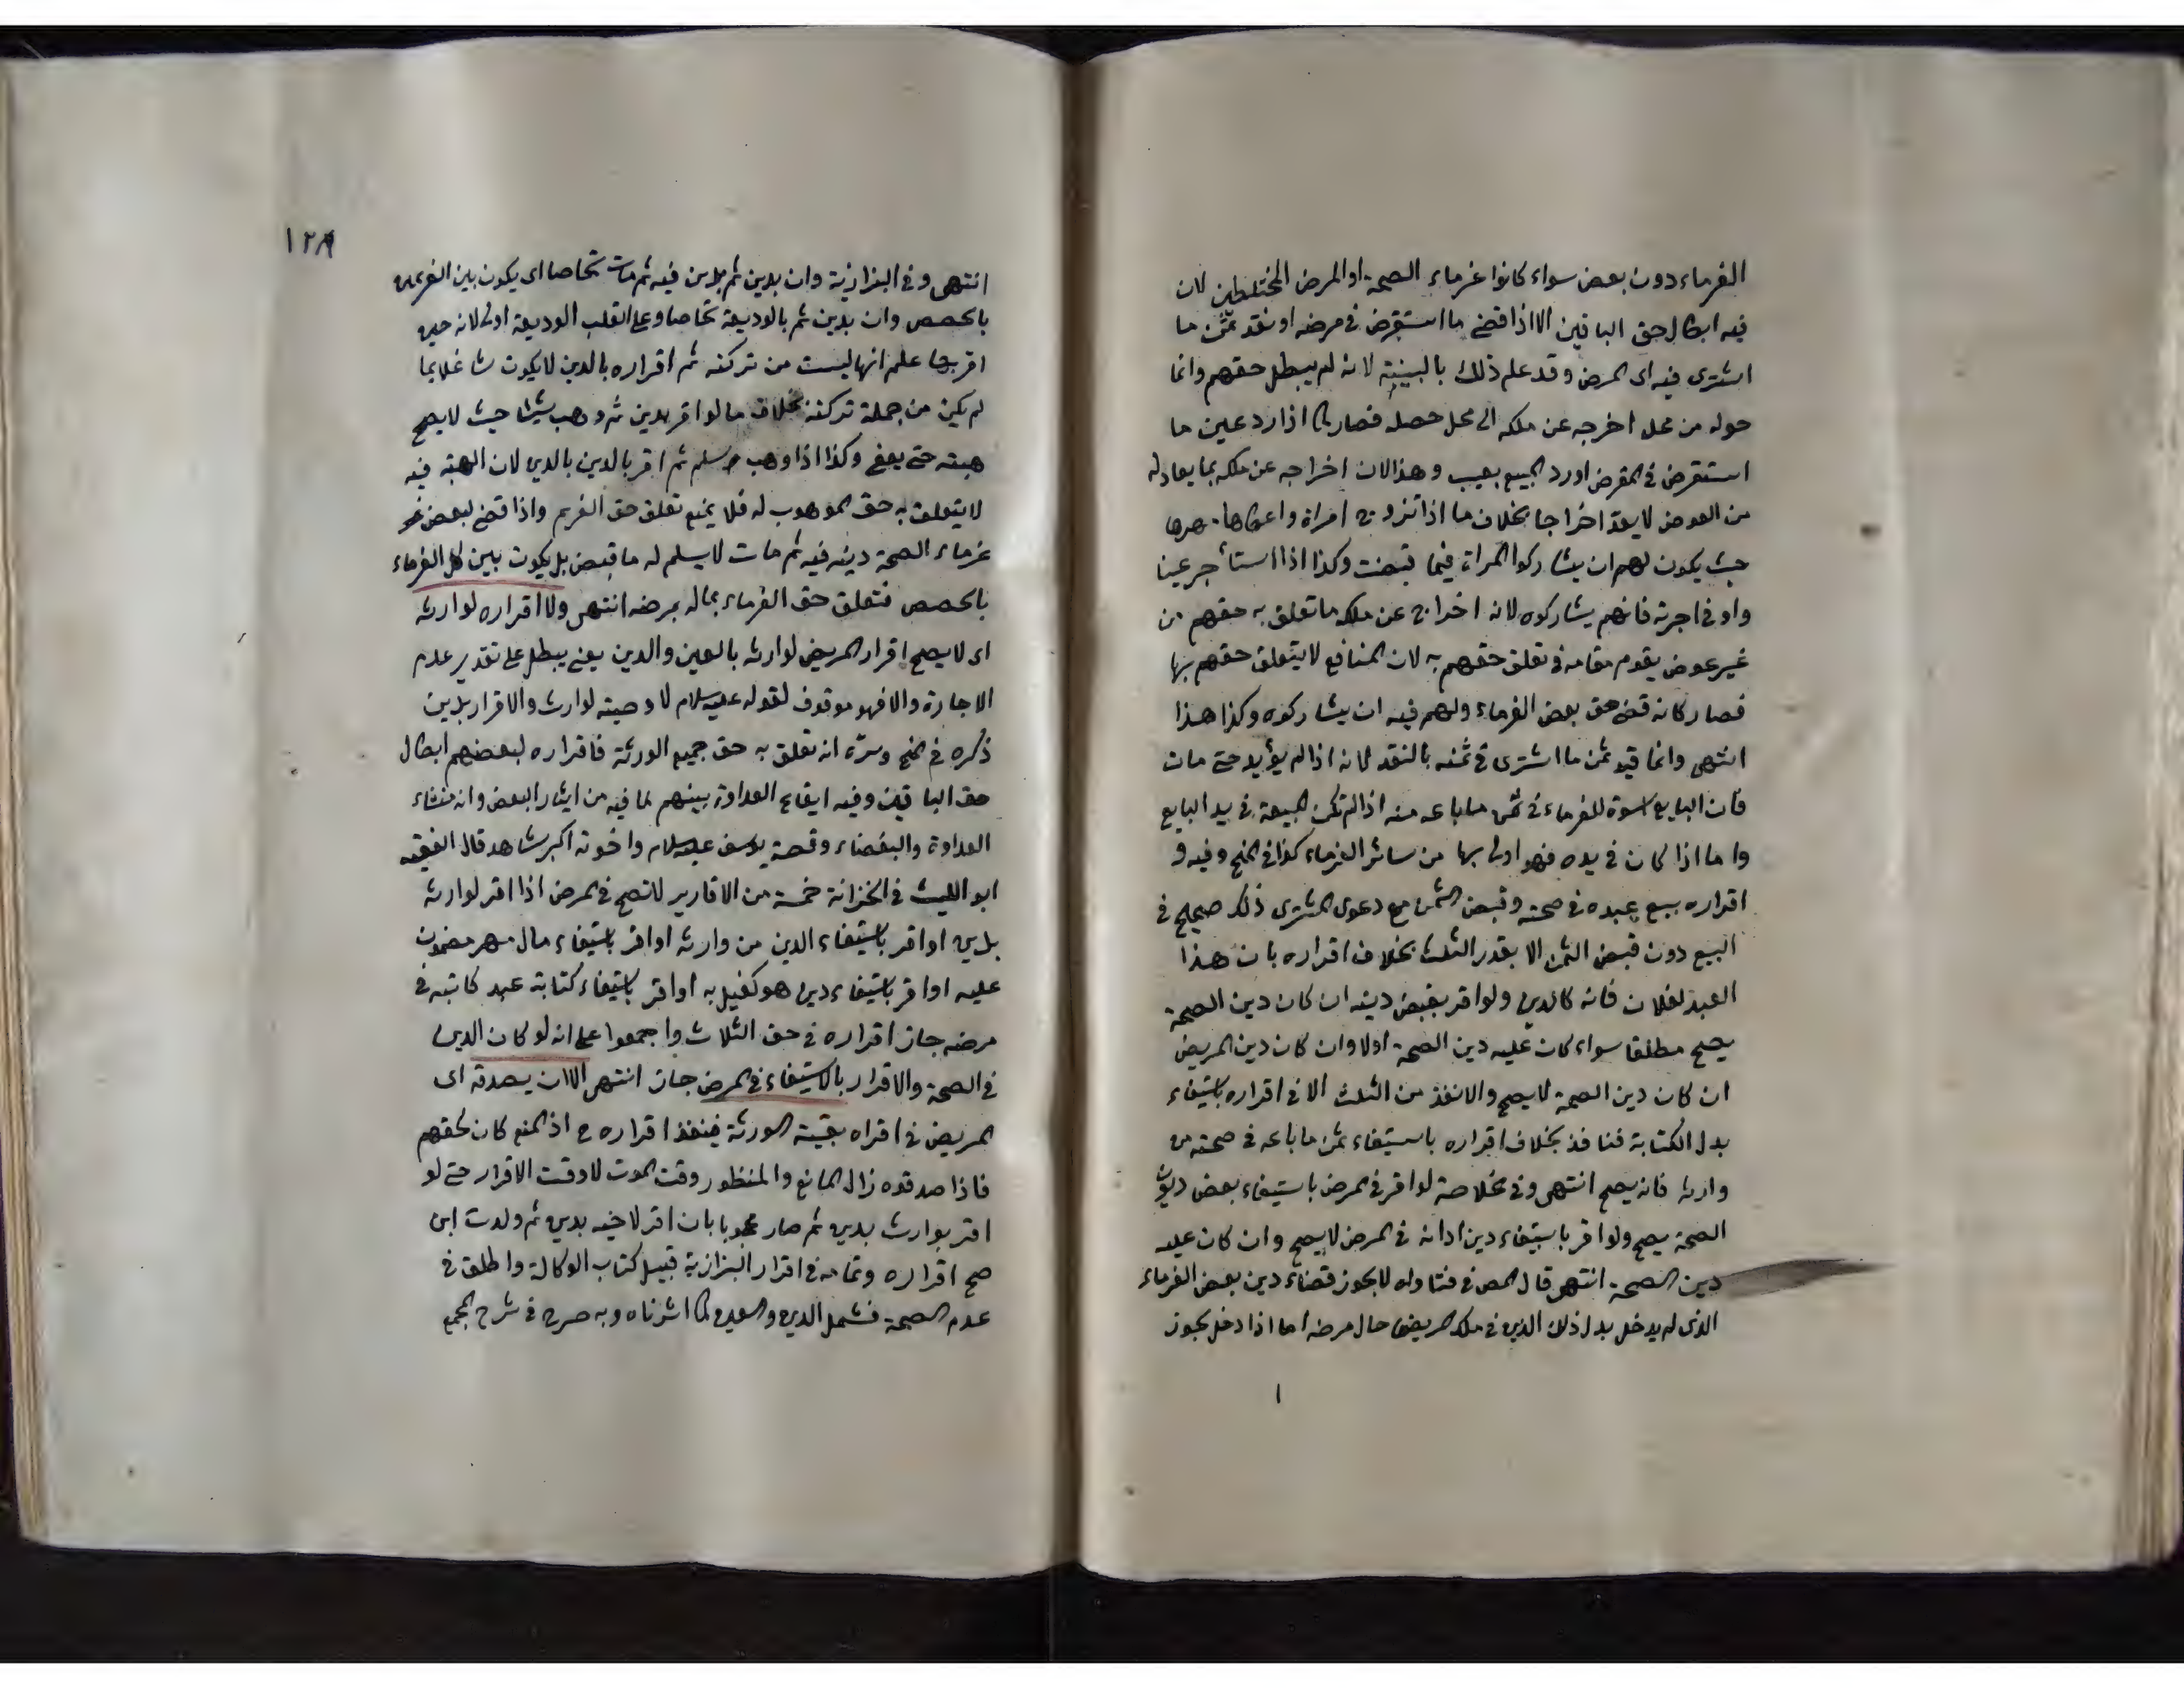 الغرماء دون بعض سواء كانوا غرماء الصحة او المرض المختلطين لان
فيه ابطال حق الباقين الا اذا قضى ما استقرض فى مرضه او نقد ثمن ما
اشترى فيه اى المرض وقد علم ذلك بالبينة لانه لم يبطل حقهم وانما
حوله من محل اخرجه عن ملكه الى محل حصله فصار كما اذا رد عين ما
استقرض فى المقرض او رد المبيع بعيب وهذا لان اخراجه عن ملكه بما يعادله
من العوض لا يعد اخراجا بخلاف ما اذا تزوج امراة واعطاها مهرها
حيث يكون لهم ان يشاركوا المراة فيما قبضت وكذا اذا استأجر عينا
واوفى اجرته فانهم يشاركوه لانه اخراج عن ملكه ما تعلق به حقهم من
غير عوض يقوم مقامه فى تعلق حقهم به لان المنافع لا يتعلق حقهم بها
فصار كانه قضى حق بعض الغرماء ولهم فيه ان يشاركوه وكذا هذا
انتهى وانما قيد ثمن ما اشترى فى ثمنه بالنقد لانه اذا لم يؤيد حتى مات
فان البايع اسوة للغرماء فى ثمن ما باعه منه اذا لم تكن المبيعة فى يد البايع
واما اذا كان فى يده فهو اولى بها من سائر الغرماء كذا فى المنح وفيه و
اقراره ببيع عبده فى صحته وقبض الثمن مع دعوى المشترى ذلك صحيح فى
البيع دون قبض الثمن الا بقدر الثلث بخلاف اقراره بان هذا
العبد لفلان فانه كالدين ولو اقر بقبض دينه ان كان دين الصحة
يصح مطلقا سواء كان عليه دين الصحة اولا وان كان دين المريض
ان كان دين الصحة لا يصح والا نفذ من الثلث الا فى اقراره باستيفاء
بدل الكتابة فنافذ بخلاف اقراره باستيفاء ثمن ما باعه فى صحته من
وارثه فانه يصح انتهى وفى الخلاصة لو اقر فى المرض باستيفاء بعض ديون
الصحة يصح ولو اقر باستيفاء دين ادانه فى المرض لا يصح وان كان عليه
دين الصحة انتهى قال المص فى فتاواه لا يجوز قضاء دين بعض الغرماء
الذى لم يدخل بدل ذلك الدين فى ملك المريض حال مرضه اما اذا دخل يجوز
١٢٨
انتهى وفى البزازية وان بدين ثم بدين فيه ثم مات تحاصا اى يكون بين الغريمين
بالحصص وان بدين ثم بالوديعة تحاصا وعلى القلب الوديعة اولى لانه حين
اقر بها علم انها ليست من تركته ثم اقراره بالدين لا يكون شاغلا بما
لم يكن من جملة تركته بخلاف ما لو اقر بدين ثم وهب شيئا حيث لا يصح
هبته حتى يعفى وكذا اذا وهب وسلم ثم اقر بالدين بالدين لان الهبة فيه
لا يتعلق به حق الموهوب له فلا يمنع تعلق حق الغريم واذا قضى لبعض
غرماء الصحة دينه فيه ثم مات لا يسلم له ما قبض بل يكون بين كل الغرماء
بالحصص فتعلق حق الغرماء بماله بمرضه انتهى ولا اقراره لوارثه
اى لا يصح اقرار المريض لوارثه بالعين والدين يعنى يبطل على تقدير عدم
الاجازة والا فهو موقوف لقوله عليه السلام لا وصية لوارث والاقرار بدين
ذكره فى المنح وسره انه تعلق به حق جميع الورثة فاقراره لبعضهم ابطال
حق الباقين وفيه ايقاع العداوة بينهم لما فيه من ايثار البعض وانه منشاء
العداوة والبغضاء وقصة يوسف عليه السلام واخوته اكبر شاهد قال الفقيه
ابو الليث فى الخزانة خمسة من الاقارير لا تصح فى المرض اذا اقر لوارثه
بدين او اقر باستيفاء الدين من وارثه او اقر باستيفاء مال مهر مضمون
عليه او اقر باستيفاء دين هو كفيل به او اقر باستيفاء كتابة عبد كاتبه فى
مرضه جاز اقراره فى حق الثلاث واجمعوا على انه لو كان الدين
فى الصحة والاقرار بالاستيفاء فى المرض جاز انتهى الا ان يصدقه اى
المريض فى اقراره بقية الورثة فينفذ اقراره ح اذ المنع كان لحقهم
فاذا صدقوه زال المانع والمنظور وقت الموت لا وقت الاقرار حتى لو
اقر بوارث بدين ثم صار محجوبا بان اقر لاخيه بدين ثم ولدت ابن
صح اقراره وتمامه فى اقرار البزازية قبيل كتاب الوكالة واطلق فى
عدم الصحة فشمل الدين والعين كما اشرناه وبه صرح فى شرح المجمع